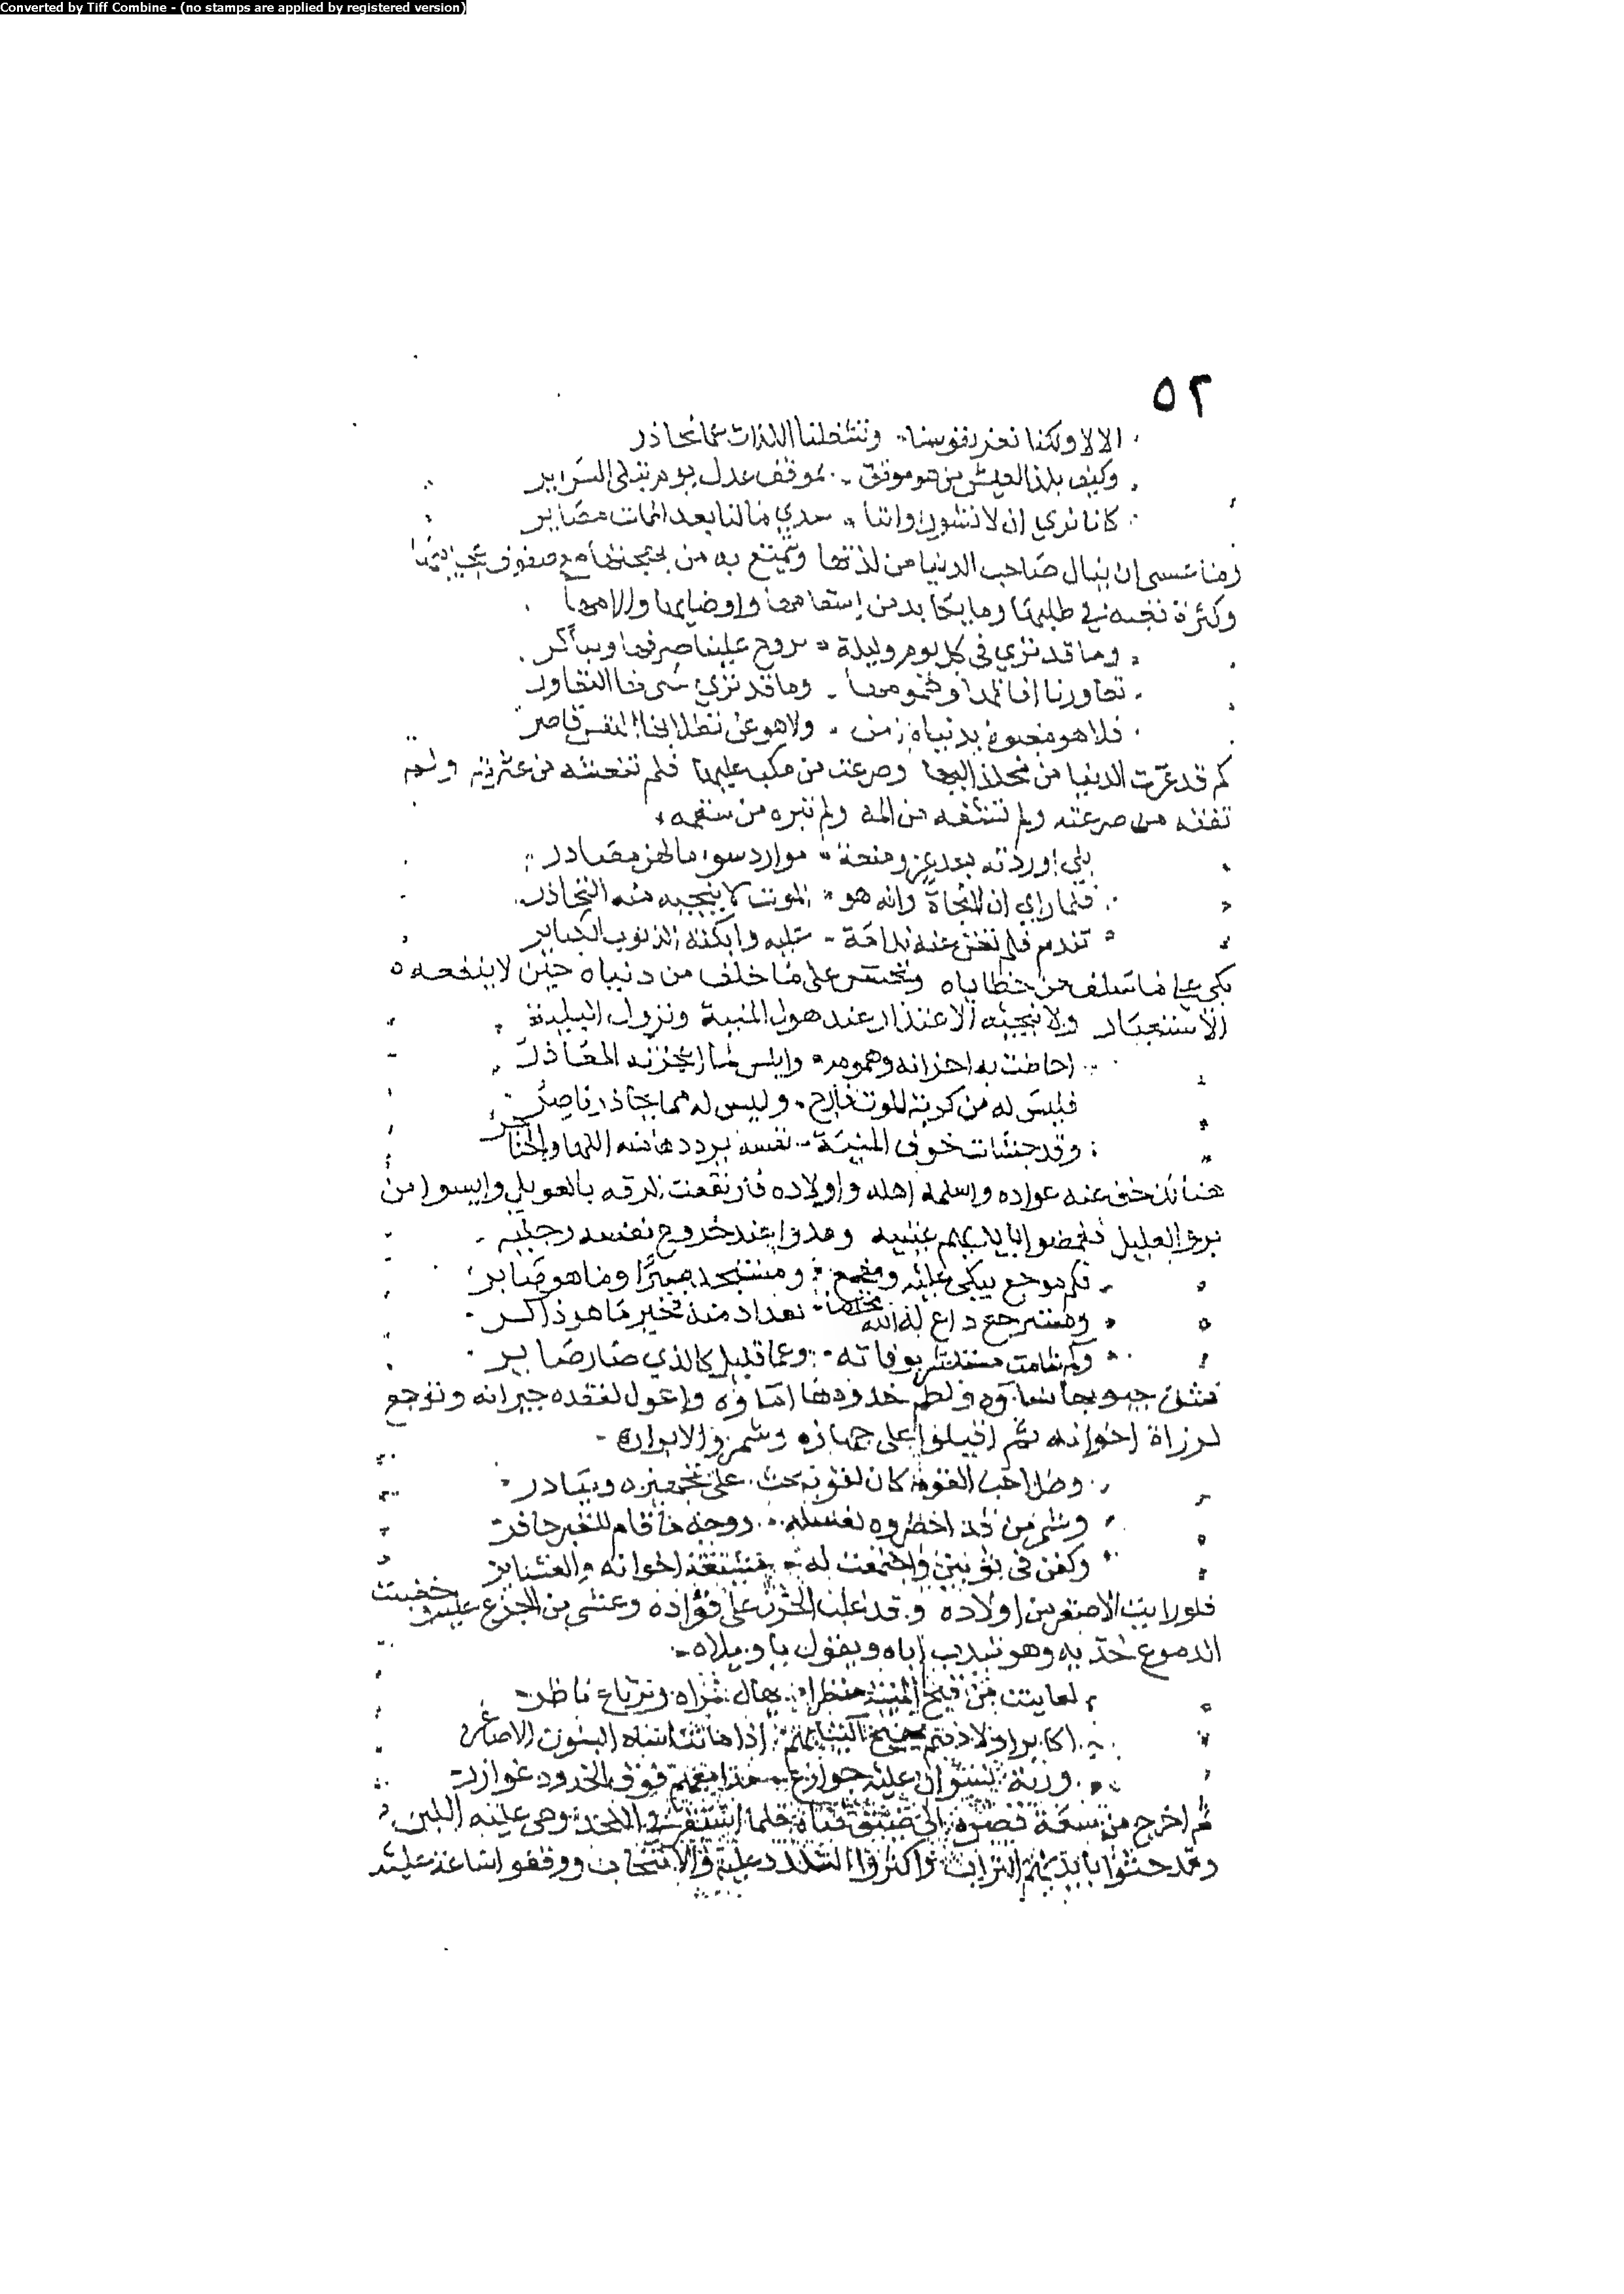 Converted by Tiff Combine - (no stamps are applied by registered version)
٥٢
الا لا ولكنا نغر نفوسنا وتشغلنا اللذات عما نحاذر
وكيف يلذ العيش من هو موقن بموقف عدل يوم تبلى السراير
كانا نري ان لا نشور واننا سدي ما لنا بعد الممات مصاير
وما عسى ان ينال صاحب الدنيا من لذتها ويتمتع به من بهجتها مع صنوف عجايبها
وكثرة تعبه في طلبها وما يكابد من اسقامها واوصابها والامها
وما قد نري في كل يوم وليلة يروح علينا صرفها ويباكر
تعاورنا افاتها وهمومها وما قد نري يبقى لها المتعاور
فلا هو مغبوط بدنياه امن ولا هو عن تطلابها النفس قاصر
كم قد غرت الدنيا من مخلد اليها وصرعت من مكب عليها فلم تنعشه من عثرته ولم
تنقذه من صرعته ولم تشفه من المه ولم تبره من سقمه
بلى اوردته بعد عز ومنعة موارد سوء ما لهن مصادر
فلما راي ان لا نجاة وانه هو الموت لا ينجيه منه التحاذر
تندم فلم تغن عنه ندامة عليه وابكته الذنوب الكباير
بكى على ما سلف من خطاياه وتحسر على ما خلف من دنياه حين لا ينفعه
الاستعبار ولا ينجيه الاعتذار عند هول المنية ونزول البلية
احاطت به احزانه وهمومه وابلس لما اعجزته المعاذر
فليس له من كربة الموت فارج وليس له مما يحاذر ناصر
وقد جشات خوف المنية نفسه يرددها منه اللها والحناجر
هنالك خف عنه عواده واسلمه اهله واولاده فارتفعت الرنه بالعويل وايسوا من
برء العليل فغمضوا بايديهم عينيه ومدوا عند خروج نفسه رجليه
فكم موجع يبكي عليه ومفجع ومستنجد صبرا وما هو صابر
ومسترجع داع له الله مخلصا تعداد منه خير ما هو ذاكر
وكم شامت مستبشر بوفاته وعما قليل كالذي صار صاير
فشق جيوبها نساؤه ولطم خدودها اماؤه واعول لفقده جيرانه وتوجع
لرزاة اخوانه ثم اقبلوا على جهازه وشمروا لابرازه
وظل احب القوم كان لقربه يحث على تجهيزه ويبادر
وشمر من قد احضروه لغسله ووجه لما قام للقبر حافر
وكفن في ثوبين واجتمعت له مشيعة اخوانه والعشاير
فلو رايت الاصغر من اولاده وقد غلب الحزن على فؤاده وغشي من الجزع عليه وخضبت
الدموع خديه وهو يندب اباه ويقول يا ويلاه
لعاينت من قبح المنية منظرا يهال لمراه ويرتاع ناظر
اكابر اولاد يهيج اكتئابهم اذا ما تناساه البنون الاصاغر
ورنة نسوان عليه جوازع مدامعهم فوق الخدود غوازر
ثم اخرج من سعة قصره الى ضيق قبره فلما استقر في اللحد وهي عليه اللبن
وقد حثوا بايديهم التراب واكثروا التلدد عليه والانتحاب ووقفوا ساعة عليه